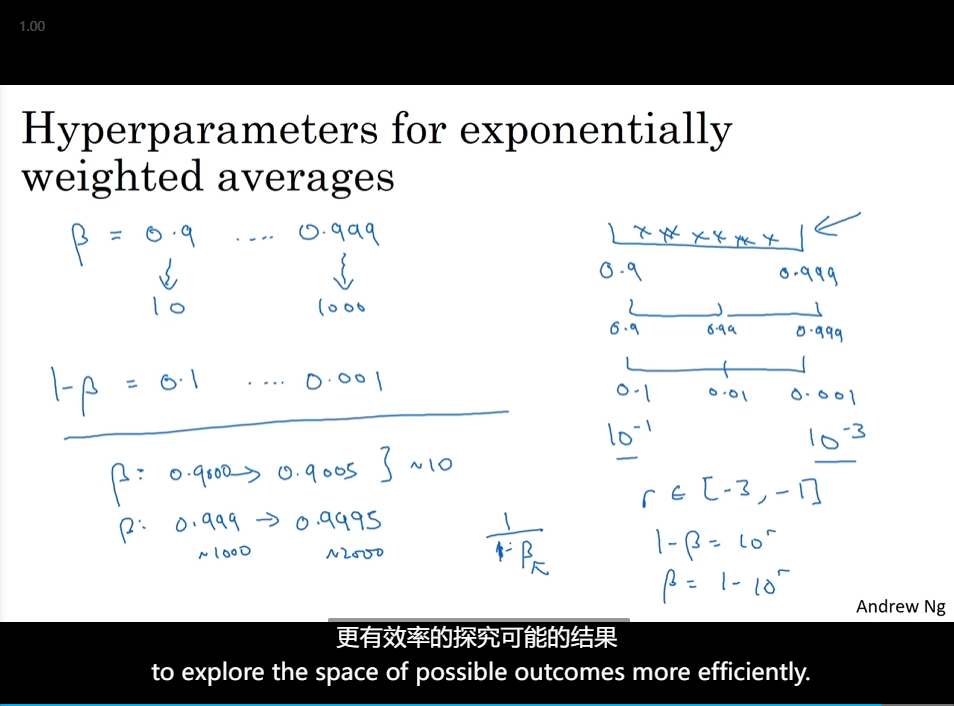 1.00
Hyperparameters for exponentially
weighted averages
β = 0.9 .... 0.999
10 1000
1-β = 0.1 .... 0.001
β: 0.9000 → 0.9005 } ~10
β: 0.999 → 0.9995
~1000 ~2000
1
1-β
0.9 0.999
0.9 0.99 0.999
0.1 0.01 0.001
10⁻¹ 10⁻³
r ∈ [-3, -1]
1-β = 10ʳ
β = 1-10ʳ
Andrew Ng
更有效率的探究可能的结果
to explore the space of possible outcomes more efficiently.